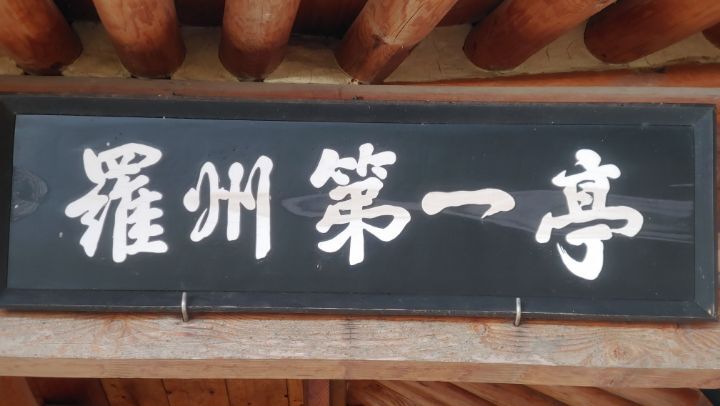 羅州第一亭